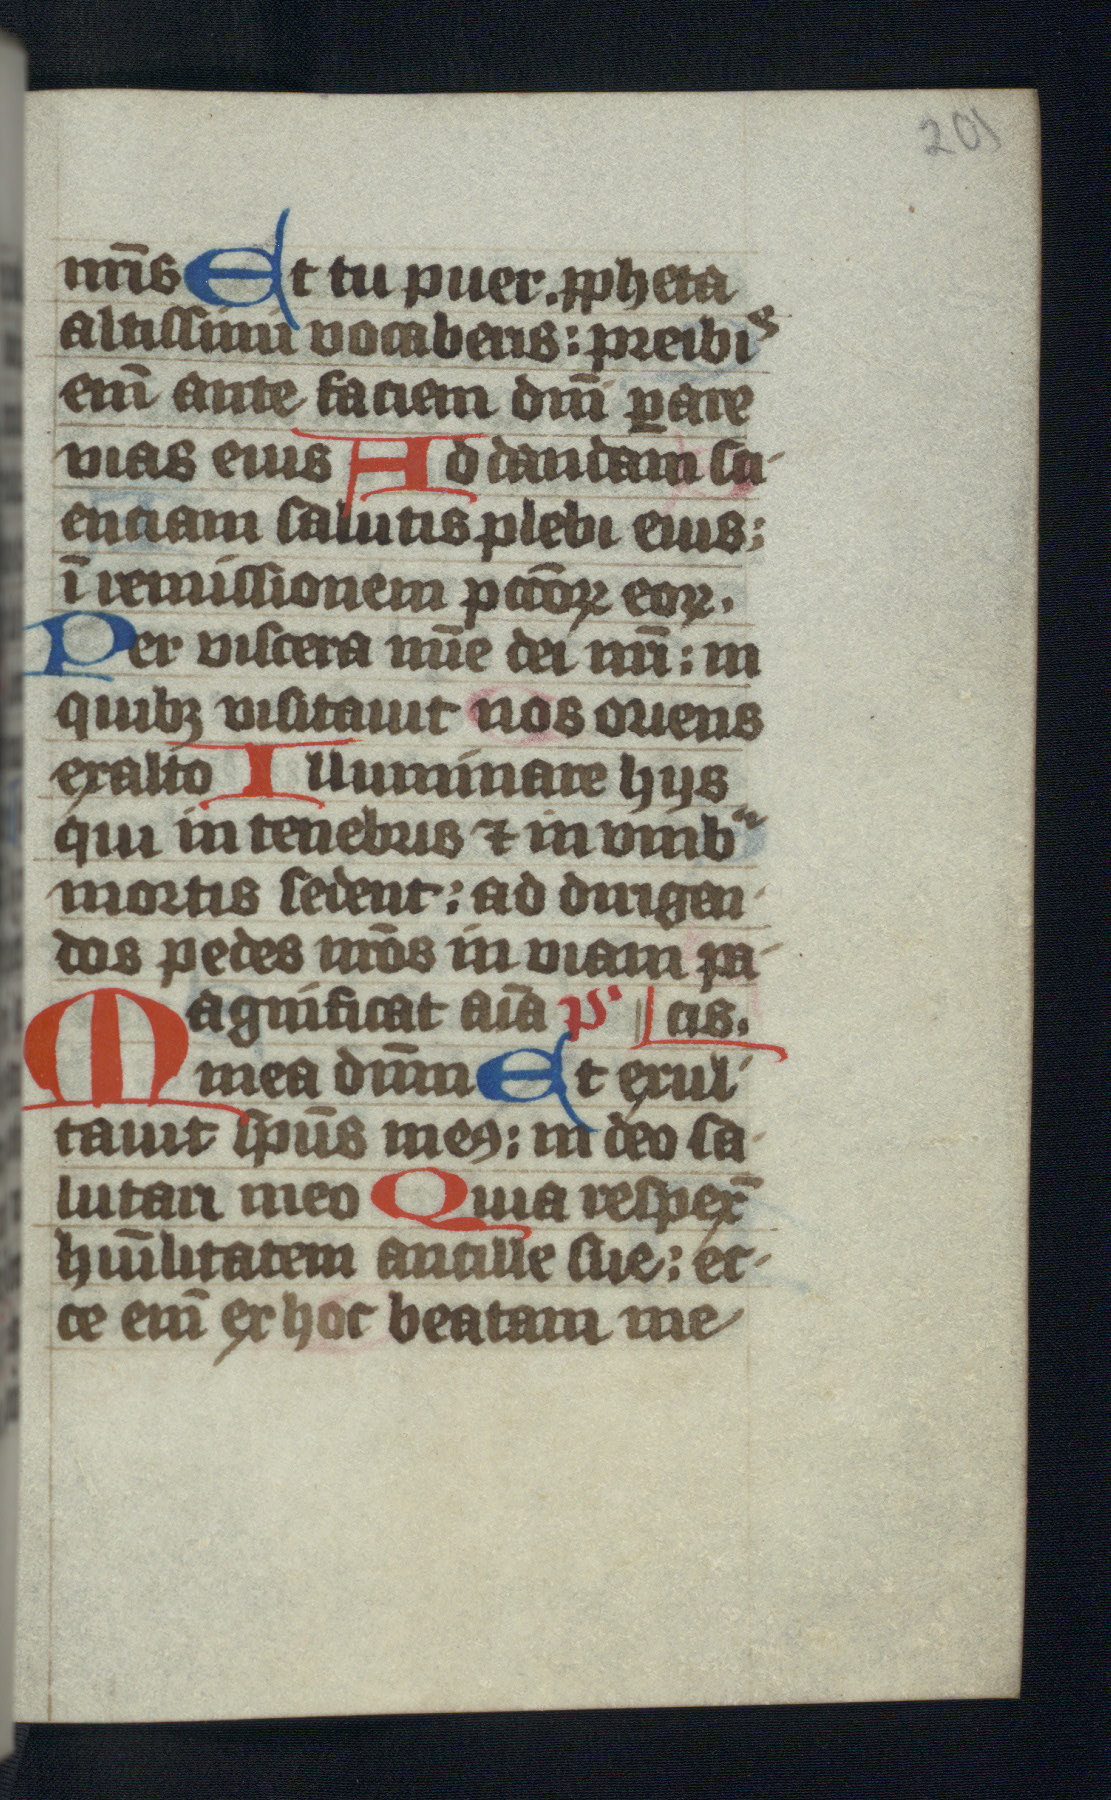 201
nr̄is Et tu puer ꝓpheta
altissimi vocaberis: preibis
em̄ ante faciem dnī ꝑare
vias eius Ad dandam sci-
enciam salutis plebi eius:
ī remissionem pctōꝝ eoꝝ.
Per viscera mīe dei nrī: in
quibꝫ visitauit nos oriens
exalto Illuminare hijs
qui in tenebris ⁊ in vmbᵃ
mortis sedent: ad dirigen-
dos pedes nrōs in viam pa-
agnificat aīa ps cis.
M mea dnm̄ Et exul-
tauit sp̄us meꝰ: in deo sa-
lutari meo Quia respex̄
hūilitatem ancille sue: ec-
ce em̄ ex hoc beatam me